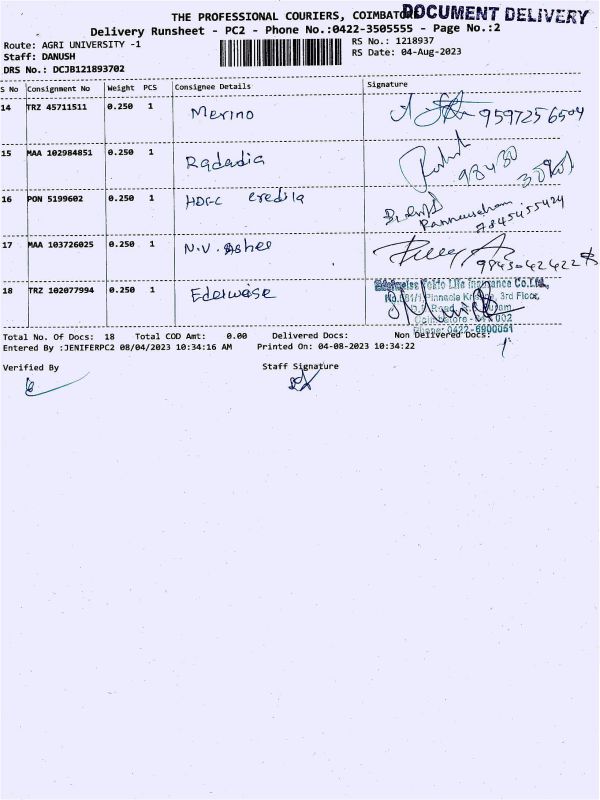 THE PROFESSIONAL COURIERS, COIMBATORE
DOCUMENT DELIVERY
Delivery Runsheet - PC2 - Phone No.:0422-3505555 - Page No.:2
Route: AGRI UNIVERSITY -1
RS No.: 1218937
Staff: DANUSH
RS Date: 04-Aug-2023
DRS No.: DCJB121893702
S No Consignment No Weight PCS Consignee Details Signature
14 TRZ 45711511 0.250 1 Merino 9597256504
15 MAA 102984851 0.250 1 Radadia 98430
16 PON 5199602 0.250 1 HDFC Credila
Panneerselvam
7845455424
17 MAA 103726025 0.250 1 N.V. Ashee
9843042422
18 TRZ 102077994 0.250 1 Edelweise
Edelweiss Tokio Life Insurance Co.Ltd.,
Pinnacle 3rd Floor,
Coimbatore - 002
Phone: 0422-6900051
Total No. Of Docs: 18 Total COD Amt: 0.00 Delivered Docs: Non Delivered Docs:
Entered By :JENIFERPC2 08/04/2023 10:34:16 AM Printed On: 04-08-2023 10:34:22
Verified By Staff Signature